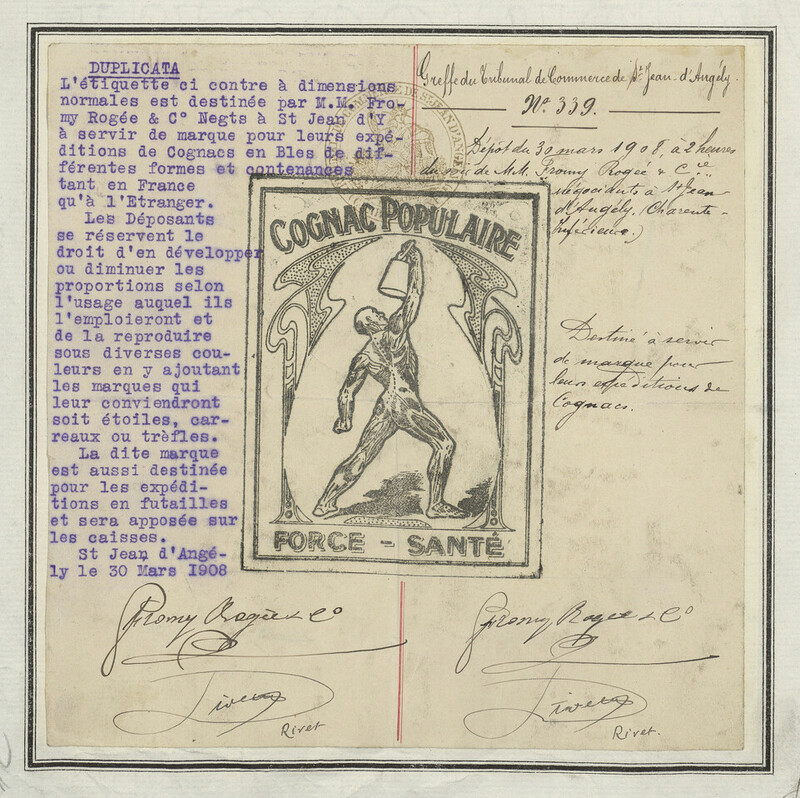 DUPLICATA
L'étiquette ci contre à dimensions
normales est destinée par M.M. Fro-
my Rogée & C° Negts à St Jean d'Y
à servir de marque pour leurs expé-
ditions de Cognacs en Bles de dif-
férentes formes et contenances
tant en France
qu'à l'Etranger.
Les Déposants
se réservent le
droit d'en développer
ou diminuer les
proportions selon
l'usage auquel ils
l'emploieront et
de la reproduire
sous diverses cou-
leurs en y ajoutant
les marques qui
leur conviendront
soit étoiles, car-
reaux ou trèfles.
La dite marque
est aussi destinée
pour les expédi-
tions en futailles
et sera apposée sur
les caisses.
St Jean d'Angé-
ly le 30 Mars 1908
Greffe du Tribunal de Commerce de St Jean-d'Angély.
N° 339.
Dépôt du 30 mars 1908, à 2 heures
du soir de M.M. Fromy Rogée & Cie,
négociants à St Jean
d'Angély, (Charente-
Inférieure.)
Destiné à servir
de marque pour
leurs expéditions de
Cognacs.
COGNAC POPULAIRE
FORCE - SANTÉ
Fromy Rogée & C°
Rivet
Rivet
Fromy Rogée & C°
Rivet
Rivet.